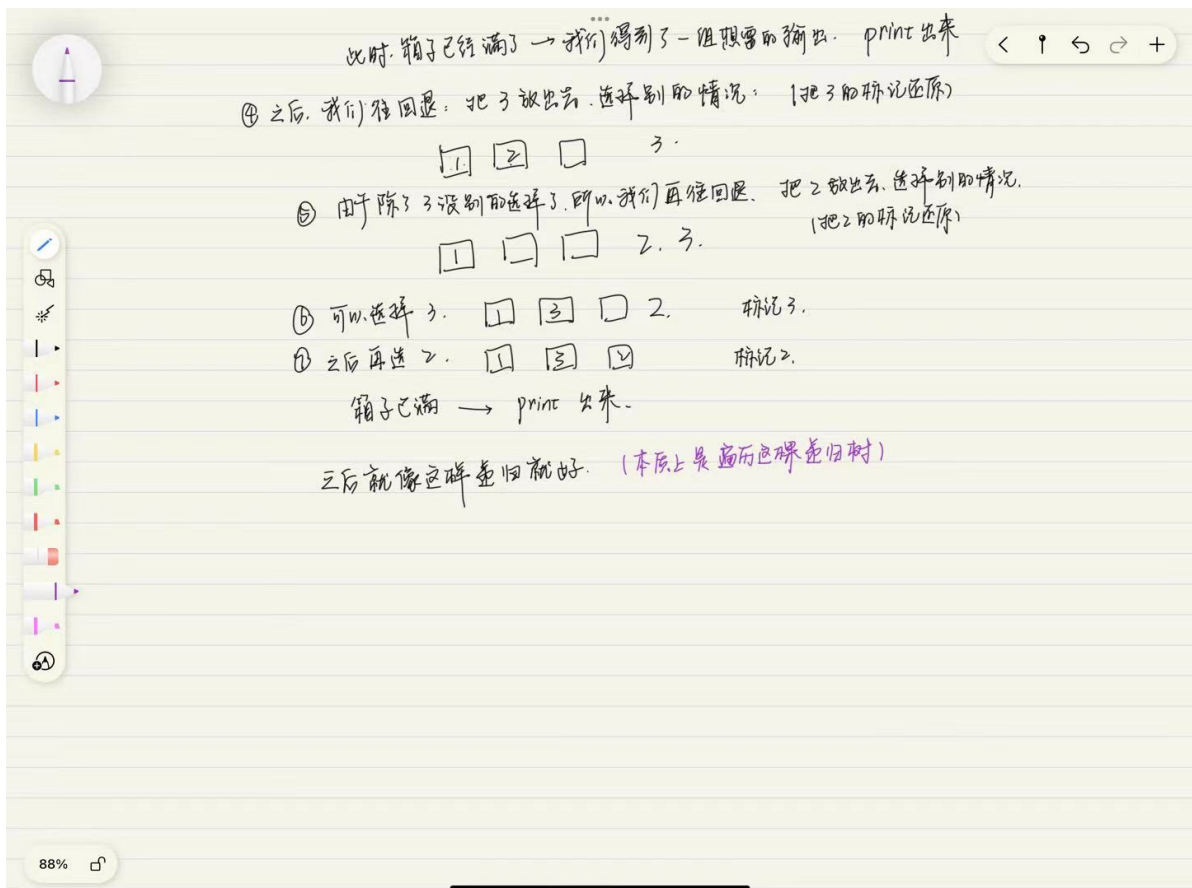 此时.箱子已经满了→我们得到了一组想要的输出. print出来
④ 之后.我们往回退:把3放出去.选择别的情况:(把3的标记还原)
1. 2 3.
⑤ 由于除了3没别的选择了.所以.我们再往回退.把2放出去.选择别的情况.
(把2的标记还原)
1 2. 3.
⑥ 可以选择3. 1 3 2. 标记3.
⑦ 之后再选2. 1 3 2 标记2.
箱子已满 → print 出来.
之后就像这样递归就好.(本质上是遍历这棵递归树)
88%